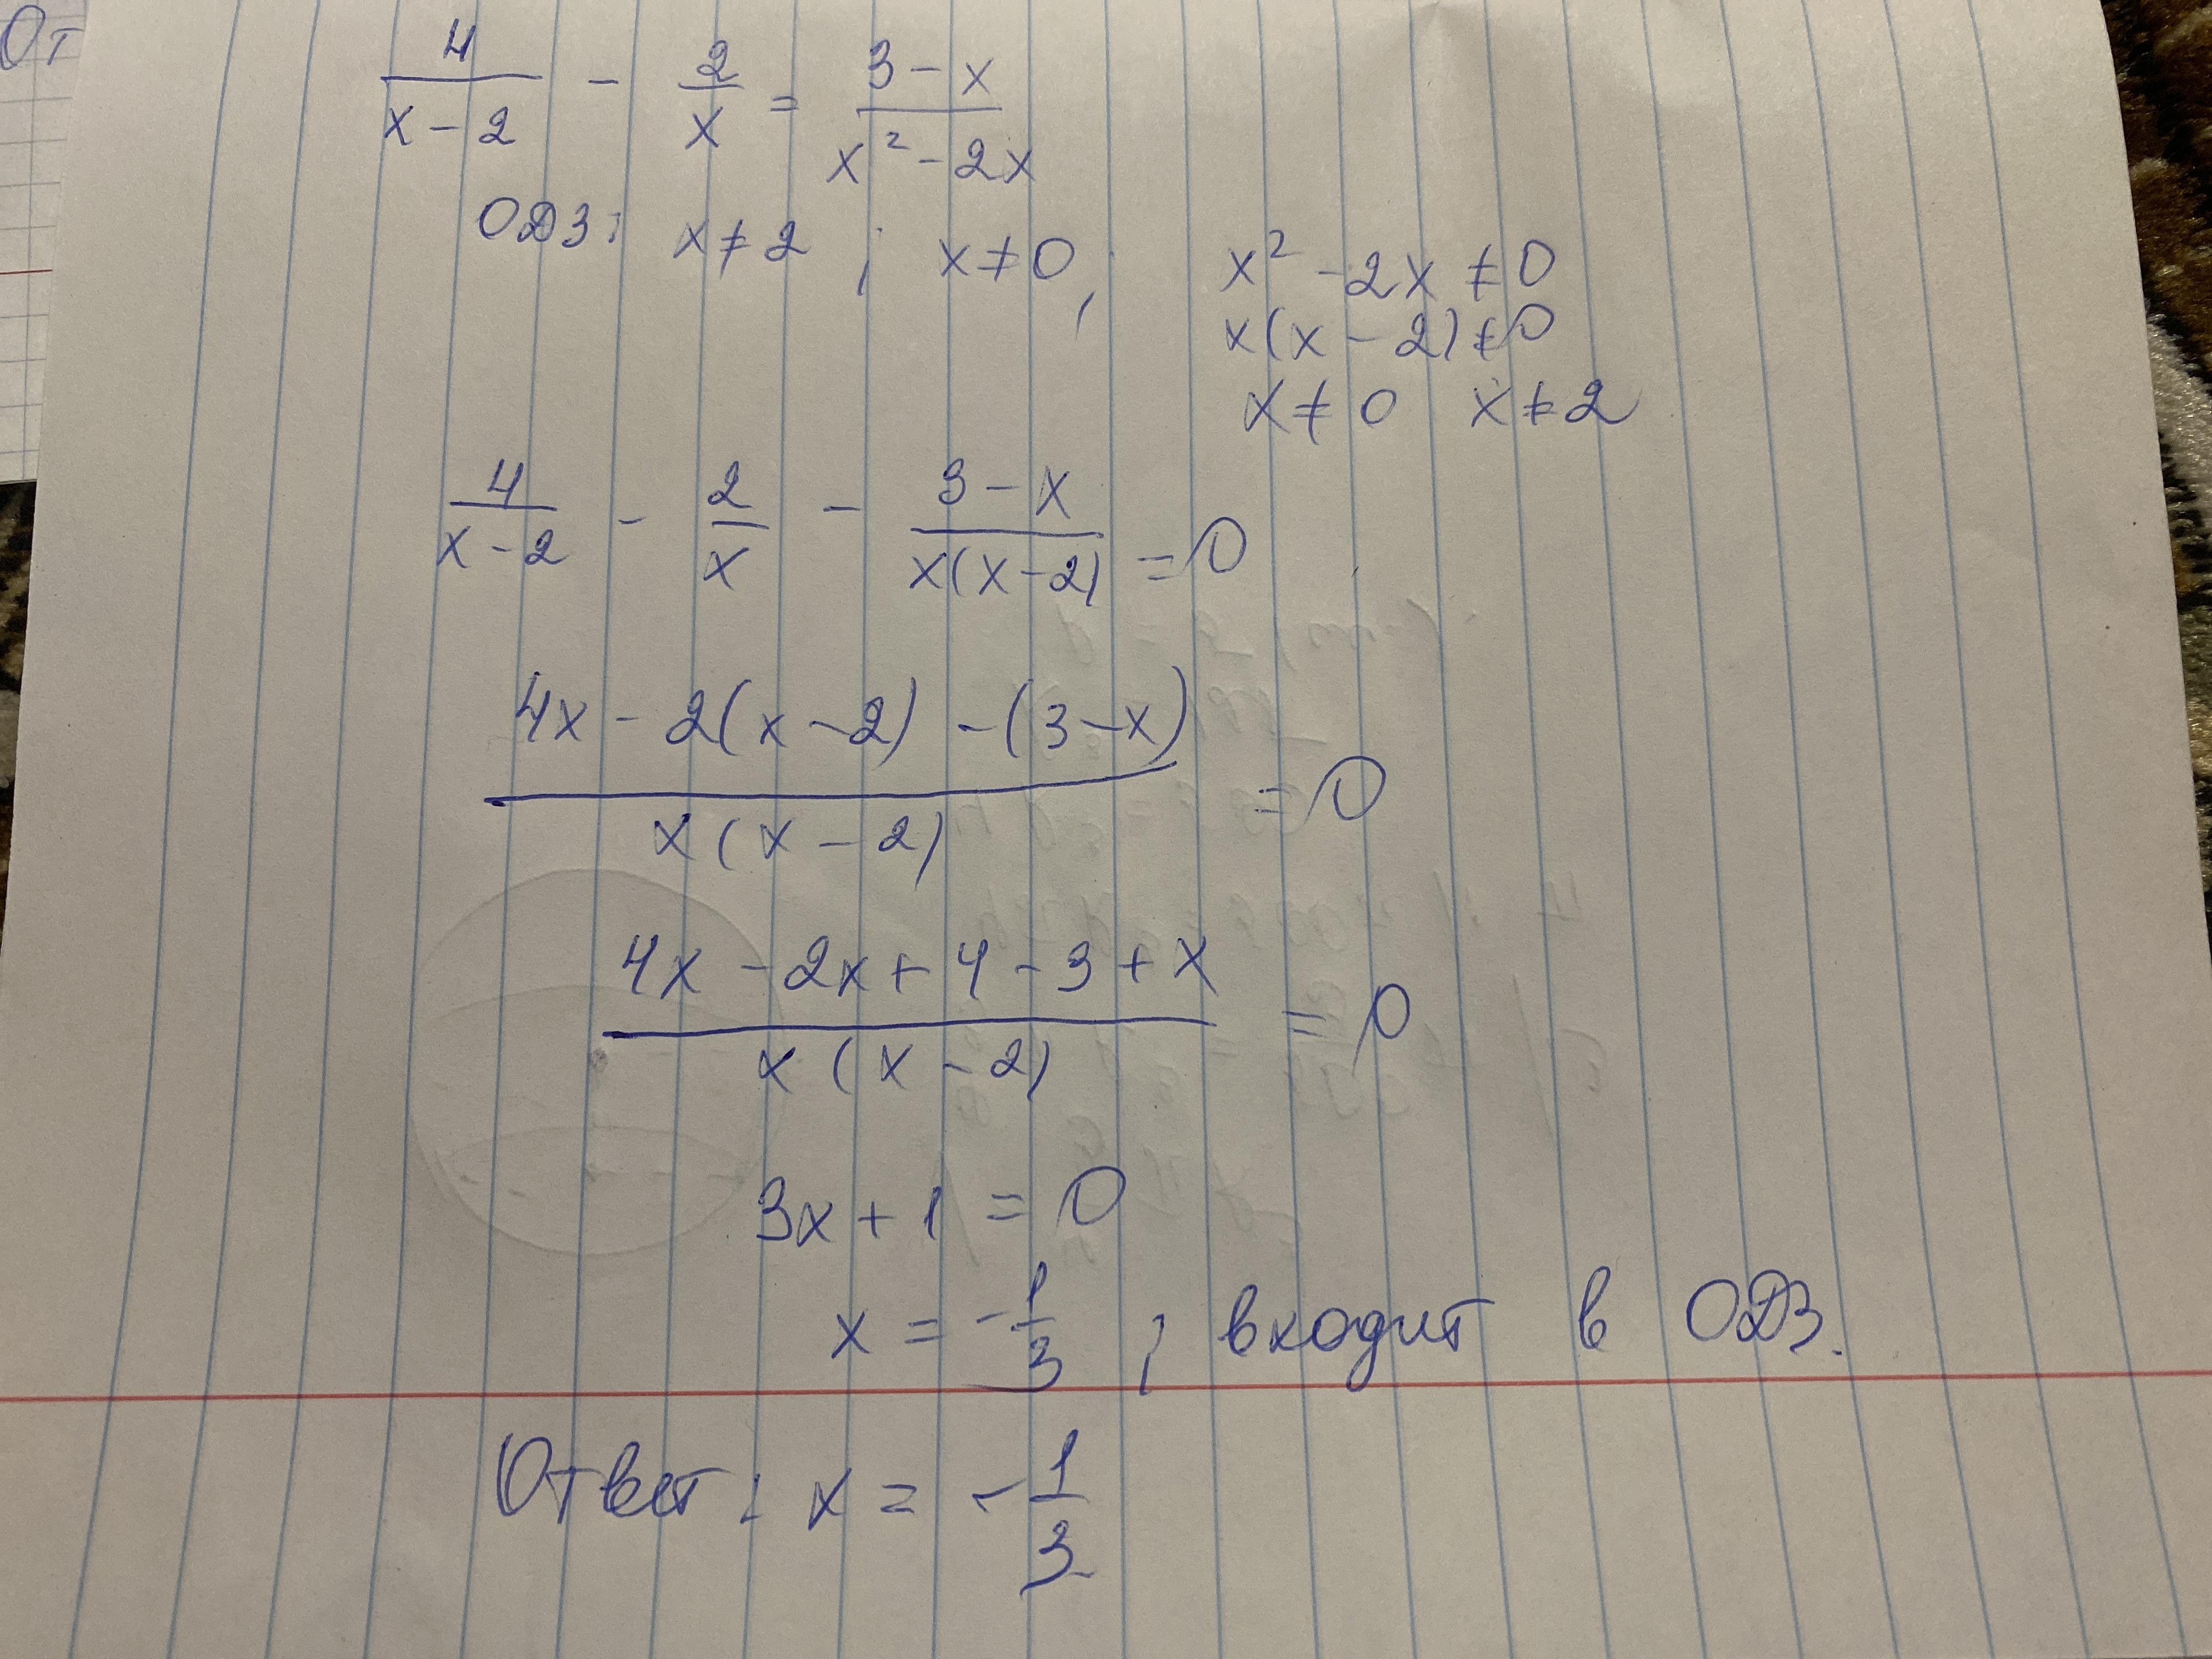 От
4/(x-2) - 2/x = (3-x)/(x²-2x)
ОДЗ: x≠2 ; x≠0, x²-2x≠0
x(x-2)≠0
x≠0 x≠2
4/(x-2) - 2/x - (3-x)/(x(x-2)) =0
(4x-2(x-2)-(3-x))/(x(x-2)) =0
(4x-2x+4-3+x)/(x(x-2)) =0
3x+1=0
x=-1/3 ; входит в ОДЗ.
Ответ: x=-1/3